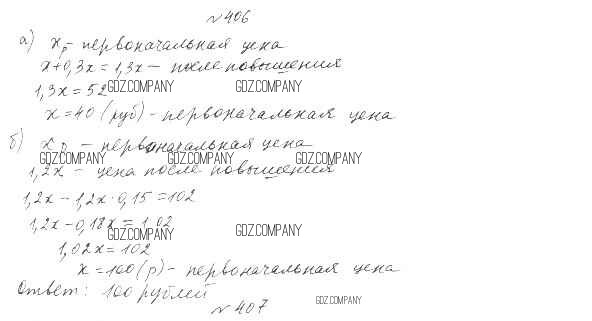 №406
а) x р - первоначальная цена
x+0,3x=1,3x - после повышения
1,3x=52
GDZ.COMPANY GDZ.COMPANY
x=40 (руб) - первоначальная цена
б) x р - первоначальная цена
GDZ.COMPANY GDZ.COMPANY GDZ.COMPANY
1,2x - цена после повышения
1,2x - 1,2x · 0,15 = 102
1,2x - 0,18x = 102
GDZ.COMPANY GDZ.COMPANY
1,02x = 102
x = 100 (р) - первоначальная цена
Ответ: 100 рублей
№407
GDZ.COMPANY